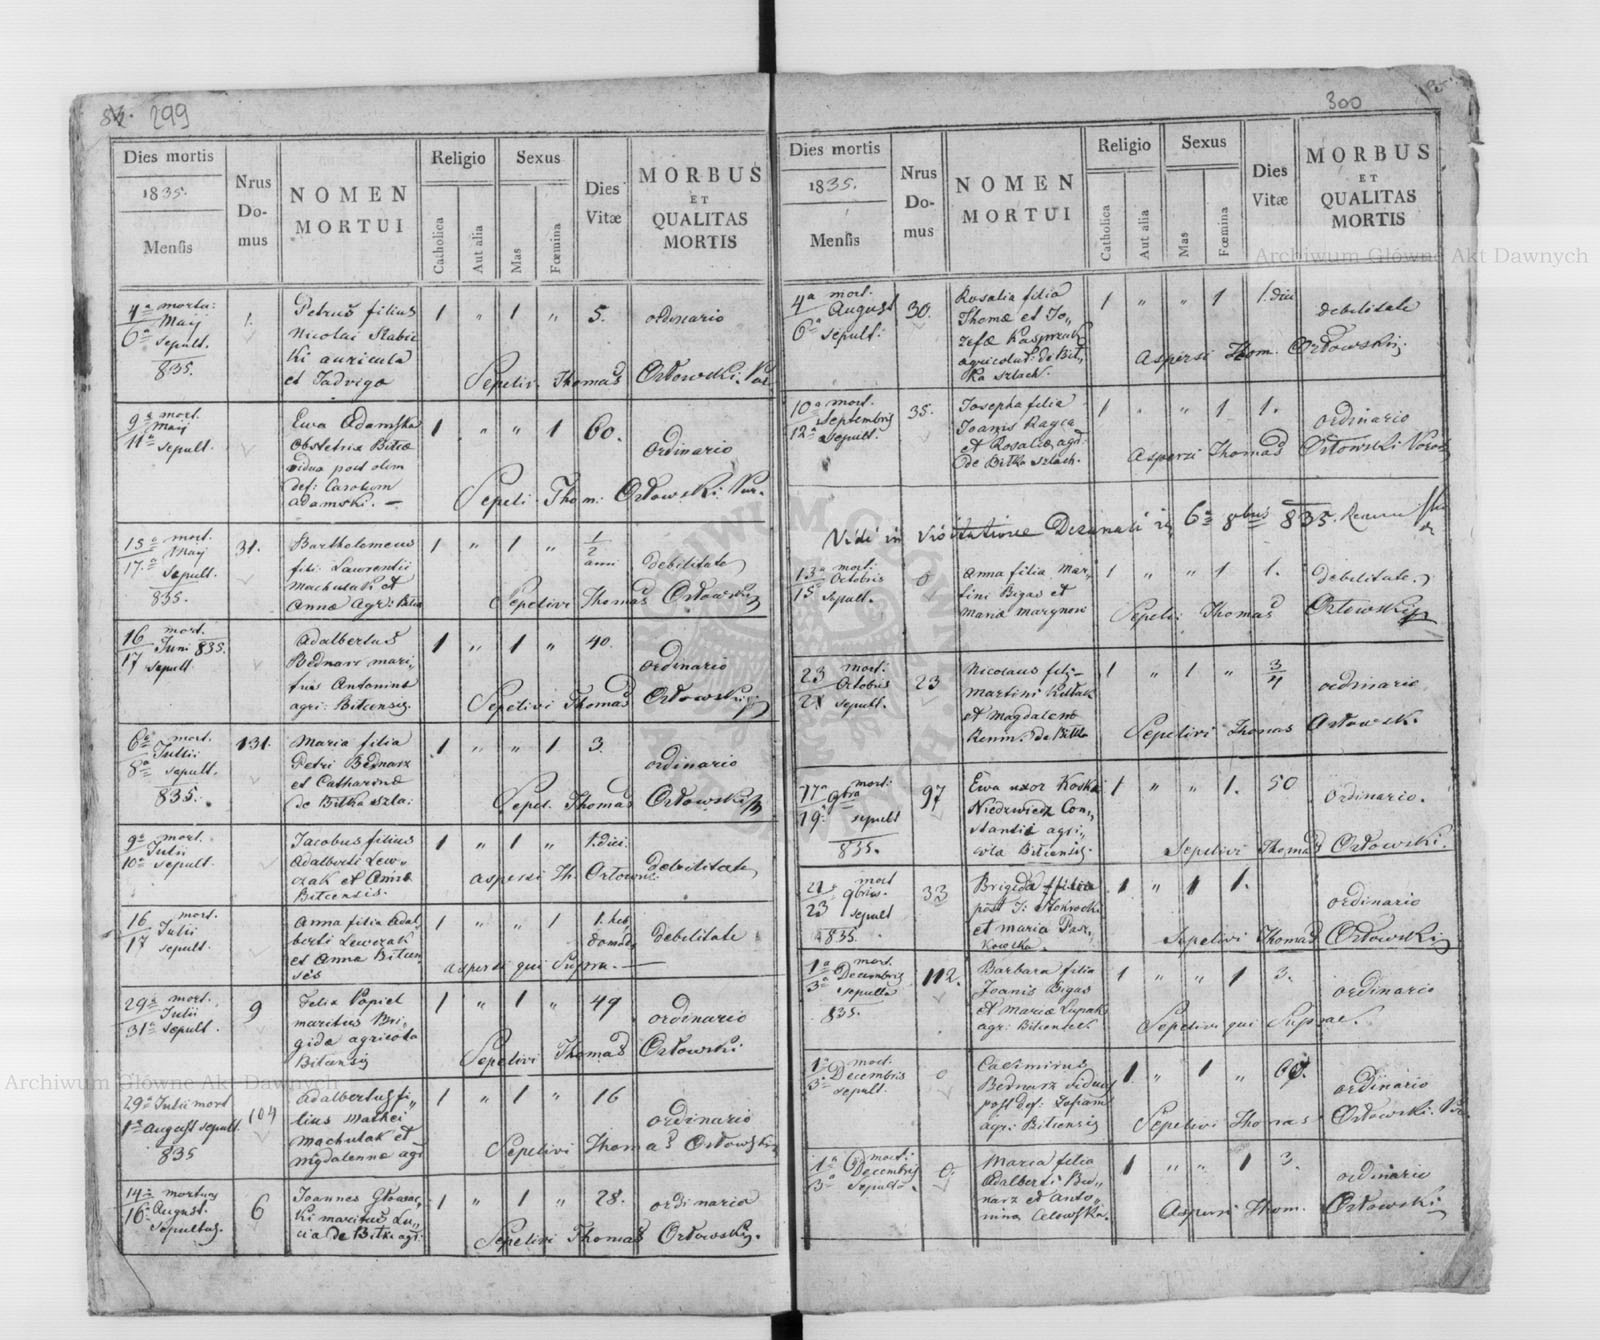 299
Dies mortis
1835.
Mensis
Nrus Do- mus
NOMEN MORTUI
Religio
Catholica
Aut alia
Sexus
Mas
Fœmina
Dies Vitæ
MORBUS ET QUALITAS MORTIS
4a mortu:
Maij
6a sepult.
835.
1.
Petrus filius
Nicolai
ki auricula
et Jadviga
1 „ 1 „ 5.
ordinario
Sepeliv. Thomas Orłowski.
9a mort.
Maij
11a sepult.
Ewa Adamska
obstetrix Bitcæ
vidua post olim
def: Carolum
Adamski. —
1 „ „ 1 60.
ordinario
Sepeli. Thom: Orłowski
15a mort.
Maij
17a sepult.
835.
31.
Bartholomeus
fili: Laurentii
Machulak et
Annæ Agri:
1 „ 1 „ 1/2 anni
debilitate
Sepelivi Thomas Orłowski
16 mort.
Juni 835.
17 sepult.
Adalbertus
Bednarz mari„
tus Antonina
agri: Bitcensis
1 „ 1 „ 40.
ordinario
Sepelivi Thomas Orłowski
6a mort.
Julii
8a sepult.
835.
131.
Maria filia
Petri Bednarz
et Catharinæ
de Bitka szla:
1 „ „ 1 3.
ordinario
Sepel. Thomas Orłowski
9a mort.
Julii
10a sepult.
Jacobus filius
Adalberti Lew„
czak et Anna
Bitcensis.
1 „ 1 „ 1. diei
debilitate
aspersi Th. Orłowski
16 mort.
Julii
17 sepult.
Anna filia Adal
berti Lewczak
et Anna Bitcen
sis
1 „ „ 1 1. heb
domad.
debilitate
aspersi qui supra. —
29a mort.
Julii
31a sepult.
9
Felix Papiel
maritus Bri„
gida agricola
Bitcensis
1 „ 1 „ 49
ordinario
Sepelivi Thomas Orłowski
29a Julii mort
1a August sepult.
835
104
Adalbertus fi„
lius Mathei
Machulak et
Magdalenna agr
1 „ 1 „ 16
ordinario
Sepelivi Thomas Orłowski
14a mortuus
August.
16a sepultus.
6
Joannes
ki maritus Lu„
cia de Bitki agr:
1 „ 1 „ 28.
ordinario
Sepelivi Thomas Orłowski.
300
Dies mortis
1835.
Mensis
Nrus Do- mus
NOMEN MORTUI
Religio
Catholica
Aut alia
Sexus
Mas
Fœmina
Dies Vitæ
MORBUS ET QUALITAS MORTIS
4a mort.
August
6a sepult:
30.
Rosalia filia
Thomæ et Jo„
zefæ Kasprzak
agricolar: de Bit„
ka szlach.
1 „ „ 1 1. diei
debilitate
Aspersi Thom. Orłowski
10a mort.
Septembris
12a sepult.
35.
Josepha filia
Joanis
et Rosaliæ agr.
de Bitka szlach.
1 „ „ 1 1.
ordinario
Aspersi Thomas Orłowski
Vidi in Visitatione Decanali die 6a 8bris 835.
13a mort:
Octobris
15 sepult.
0
Anna filia Mar„
tini Bigas et
Maria
1 „ „ 1 1.
debilitate.
Sepeli Thomas Orłowski
23 mort:
Octobris
sepult.
23
Nicolaus fili„
Martini
et Magdalena
de Bitka
1 „ 1 „ 3/4
ordinario
Sepelivi Thomas Orłowski.
17a mort:
9bris
19. sepult
835.
97
Ewa uxor
Niedzwiedz Con„
stantii agri„
cola Bitcensis.
1 „ „ 1. 50
ordinario.
Sepelivi Thomas Orłowski.
21 mort
9bris
23 sepult
835.
33
Brigida filia
post
et maria
1 „ 1 1.
ordinario
Sepelivi Thomas Orłowski
1a mort.
Decembris
3a sepulta
835.
112.
Barbara filia
Joanis Bigas
et Mariæ
agri: Bitcensis
1 „ „ 1 3.
ordinario
Sepelivi qui Supra.
1a mort.
Decembris
3a sepult.
0
Casimirus
Bednarz viduus
post def: Zofiam
agri: Bitcensis
1. „ 1 „ 60.
ordinario
Sepelivi Thomas Orłowski.
1a mort:
Decembris
3a sepulta.
0.
Maria filia
Adalberti Bed„
narz et Anto„
nina
1 „ „ 1 3.
ordinario
Aspersi Thom. Orłowski
Archiwum Główne Akt Dawnych
Archiwum Główne Akt Dawnych